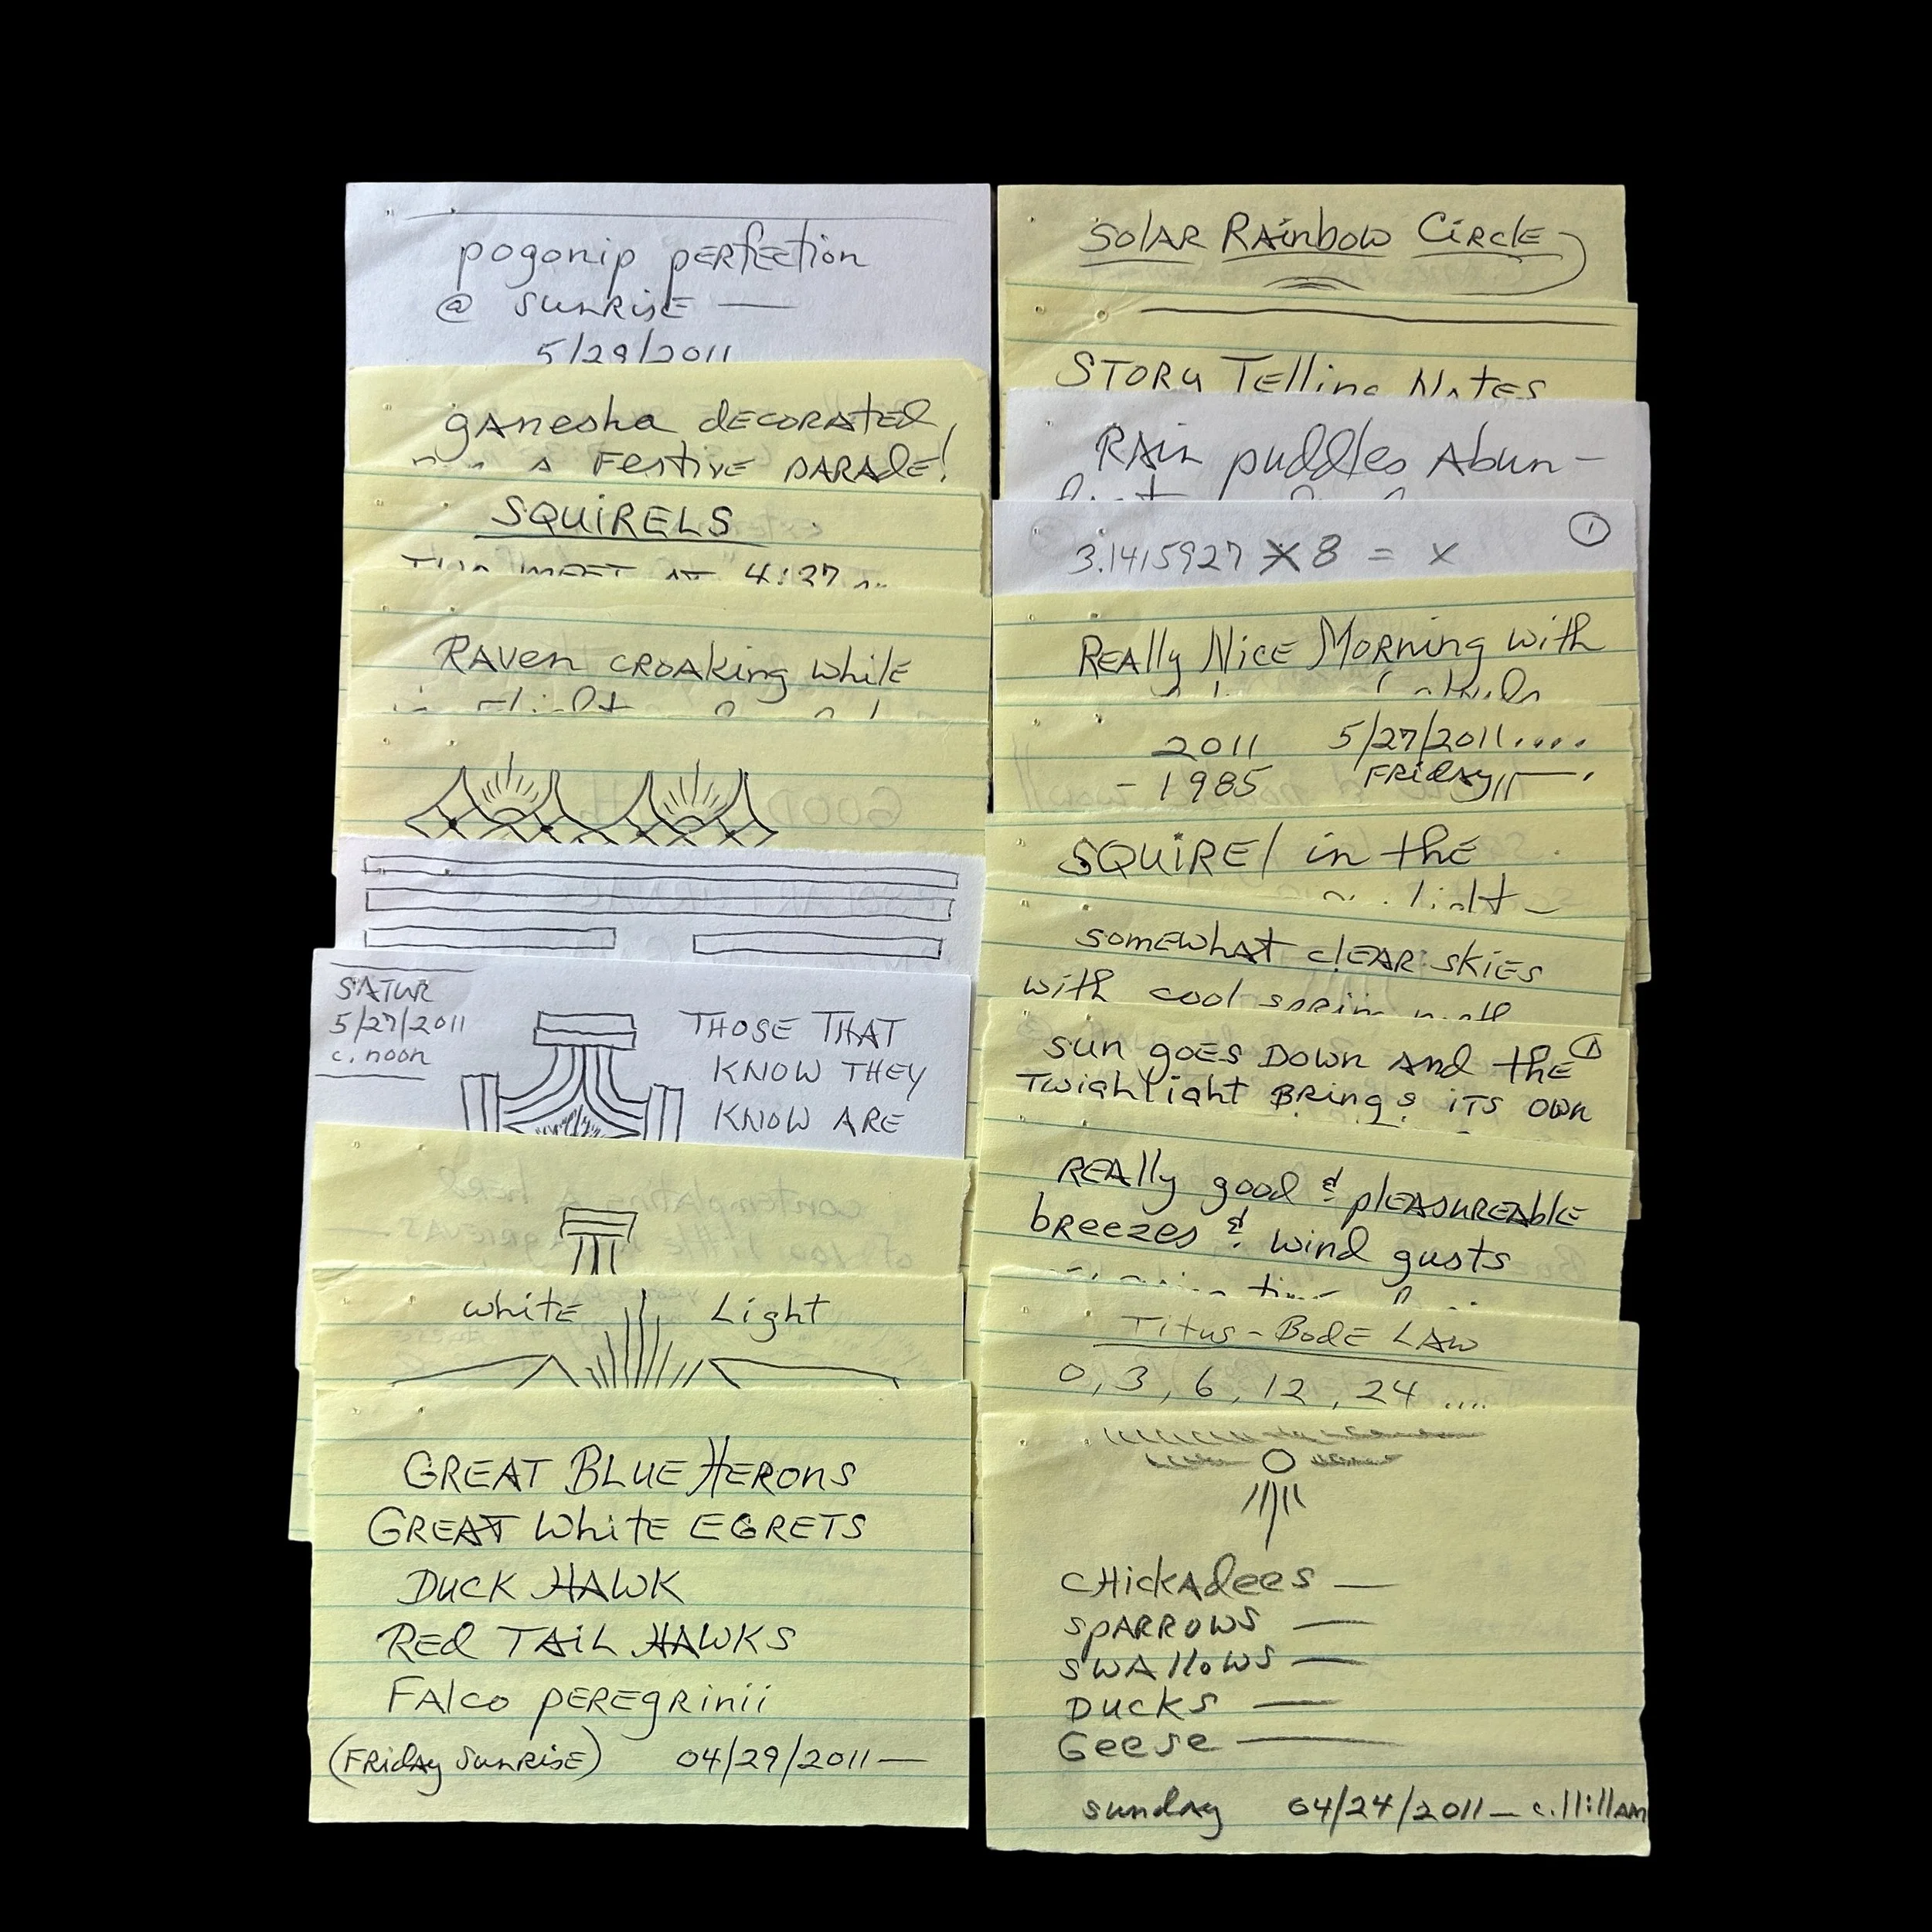 pogonip perfection
@ sunrise —
5/29/2011
ganesha decorated,
a festive parade!
SQUIRELS
MEET AT 4:27
Raven croaking while
SATUR
5/27/2011
c. noon
THOSE THAT
KNOW THEY
KNOW ARE
white Light
GREAT BLUE HERONS
GREAT White EGRETS
DUCK HAWK
RED TAIL HAWKS
FALCO pEREgRinii
(FRiday SunRisE) 04/29/2011—
Solar Rainbow Circle
Story Telling Notes
Rain puddles Abun-
1
3.1415927 X 8 = x
Really Nice Morning with
2011 5/27/2011....
- 1985 Friday
SQUIREl in the
light —
somewhat clear skies
with cool
1
sun goes down and the
Twighlight Brings its own
Really good & pleasureable
breezes & wind gusts
Titus-Bode Law
0, 3, 6, 12, 24 ....
CHickadees —
SPARROWS —
SWAlloWS —
DUCKS —
Geese —
sunday 04/24/2011— c.11:11AM